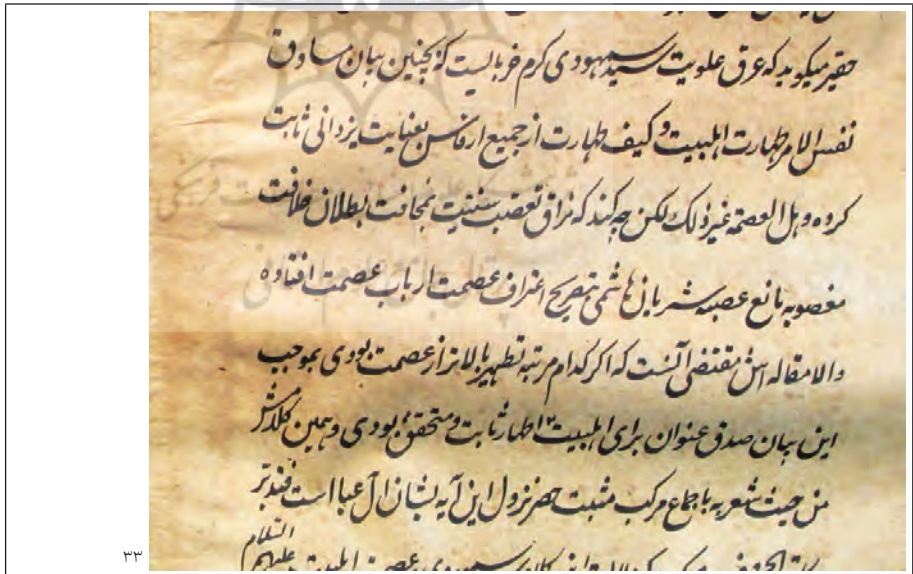 حقیر میکوید که عرق علویت سید سمهودی کرم خو بالیست که بچنین بیان مساوق
نفس الامر طهارت اهلبیت و کیف طهارت از جمیع ارفاس بعنایت یزدانی ثابت
کرده و هل العصمة غیر ذلک لکن چه کند که مراق تعصب سنیت بمخافت بطلان خلافت
مغصوبه مانع عصبه شریان هاشمی بتصریح اعتراف عصمت ارباب عصمت افتاده
والا مقاله اش مقتضی آنست که اکر کدام مرتبه تطهیر بالاتر از عصمت بودی بموجب
این بیان صدق عنوان برای اهلبیت اطهار ثابت و متحقق بودی و همین کلامش
من حیث شعر به باجماع مرکب مثبت حصر نزول این آیه بشان ال عبا است فتدبر
علیهم السلام
۳۳